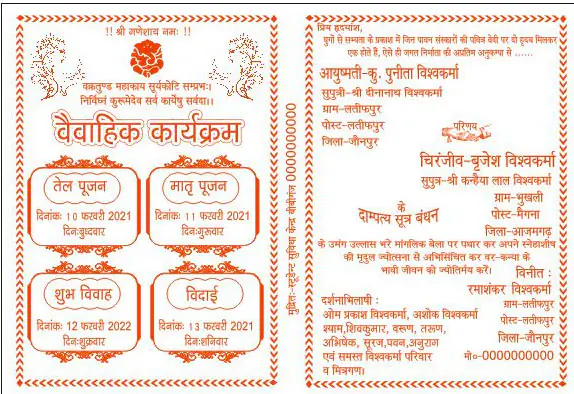 !! श्री गणेशाय नमः !!
वक्रतुण्ड महाकाय सूर्यकोटि सम्प्रभः।
निर्विघ्नं कुरूमेदेव सर्व कार्येषु सर्वदा।।
वैवाहिक कार्यक्रम
तेल पूजन
दिनांकः 10 फरवरी 2021
दिनःबुधवार
मातृ पूजन
दिनांकः 11 फरवरी 2021
दिनःगुरूवार
शुभ विवाह
दिनांकः 12 फरवरी 2022
दिनःशुक्रवार
विदाई
दिनांकः 13 फरवरी 2021
दिनःशनिवार
मुद्रित:-स्टूडेन्ट सुविधा केन्द्र बीबीगंज 0000000000
प्रिय हृदयांश,
युगों से सभ्यता के प्रकाश में जिन पावन संस्कारों की पवित्र वेदी पर दो हृदय मिलकर
एक होते हैं, ऐसे ही जगत निर्माता की अप्रतिम अनुकम्पा से ......
आयुष्मती-कु. पुनीता विश्वकर्मा
सुपुत्री-श्री दीनानाथ विश्वकर्मा
ग्राम-लतीफपुर
पोस्ट-लतीफपुर
जिला-जौनपुर
परिणय
चिरंजीव-बृजेश विश्वकर्मा
सुपुत्र-श्री कन्हैया लाल विश्वकर्मा
ग्राम-भुखली
पोस्ट-मैगना
जिला-आजमगढ़
के
दाम्पत्य सूत्र बंधन
के उमंग उल्लास भरे मांगलिक बेला पर पधार कर अपने स्नेहाशीष
की मृदुल ज्योत्सना से अभिसिंचित कर वर-कन्या के
भावी जीवन को ज्योतिर्मय करें।
विनीत :
रमाशंकर विश्वकर्मा
ग्राम-लतीफपुर
पोस्ट-लतीफपुर
जिला-जौनपुर
मो०-0000000000
दर्शनाभिलाषी :
ओम प्रकाश विश्वकर्मा, अशोक विश्वकर्मा
श्याम,शिवकुमार, वरूण, तरूण,
अभिषेक, सूरज,पवन,अनुराग
एवं समस्त विश्वकर्मा परिवार
व मित्रगण।